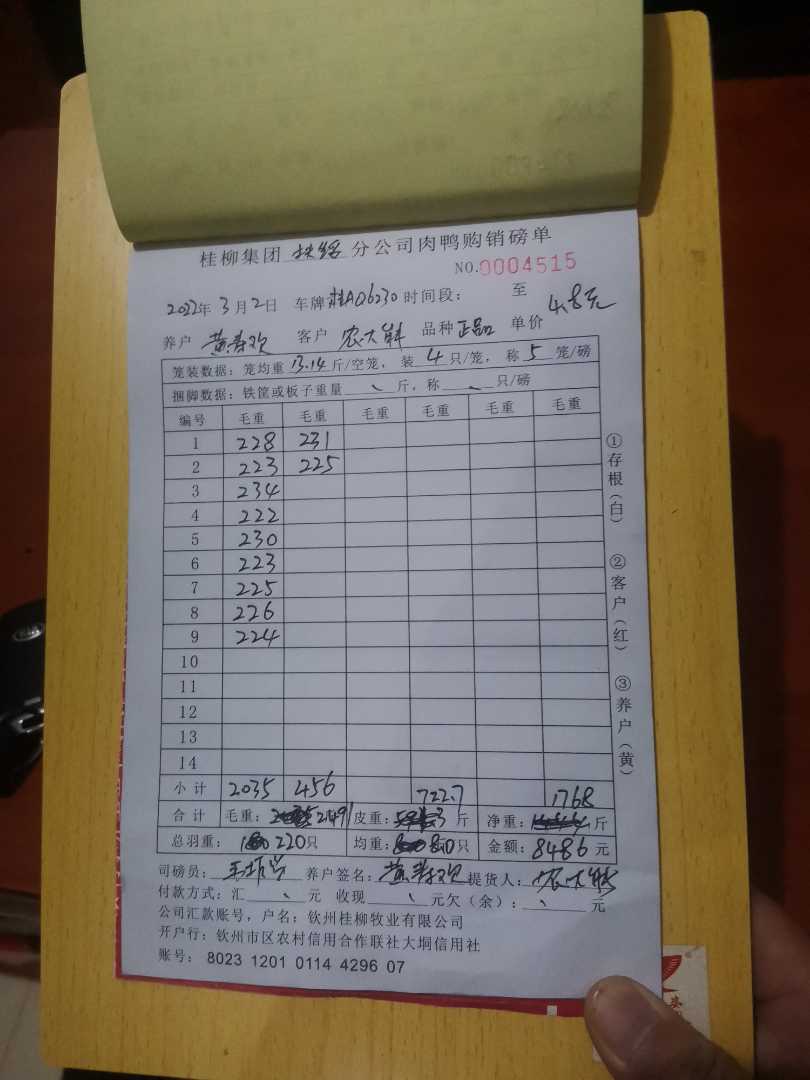 桂柳集团 扶绥 分公司肉鸭购销磅单
NO.0004515
2022年 3月 2日 车牌 桂AD6230 时间段： 至
养户 客户 农大 品种 正品 单价 4.8元
笼装数据：笼均重 13.14 斤/空笼，装 4 只/笼，称 5 笼/磅
捆脚数据：铁筐或板子重量 、 斤，称 、 只/磅
编号 毛重 毛重 毛重 毛重 毛重 毛重
1 228 231
2 223 225
3 234
4 222
5 230
6 223
7 225
8 226
9 224
10
11
12
13
14
小计 2035 456 722.7 1768
合计 毛重： 2491 皮重： 斤 净重： 斤
总羽重： 220只 均重： 8.0只 金额：8486元
司磅员： 养户签名： 提货人：农大
付款方式：汇 、 元 收现 、 元欠（余）： 、 元
公司汇款账号，户名：钦州桂柳牧业有限公司
开户行：钦州市区农村信用合作联社大垌信用社
账号： 8023 1201 0114 4296 07
①存根（白） ②客户（红） ③养户（黄）